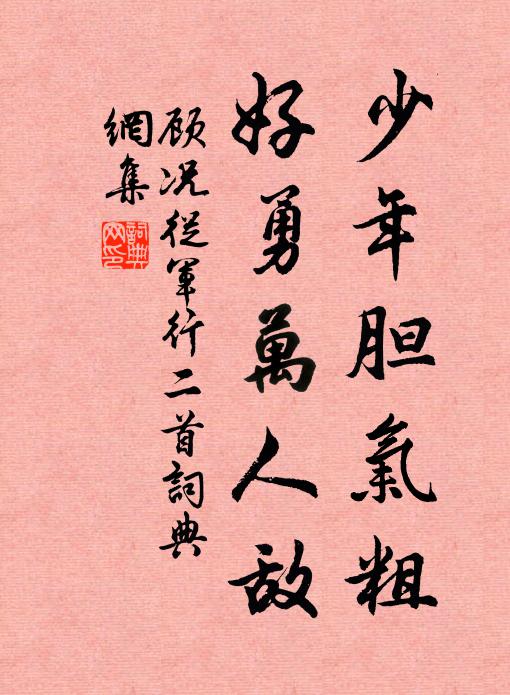 少年胆氣粗
好勇萬人敌
顾况從軍行二首詞典
網集
詞典网印